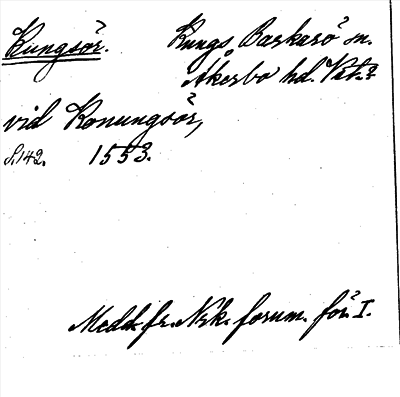 Kungsör. Kungs Barkarö sn.
Åkerbo hd. Vstm.
vid Konungsör,
S. 142. 1553.
Medd. fr. Nrk. fornm. för. I.